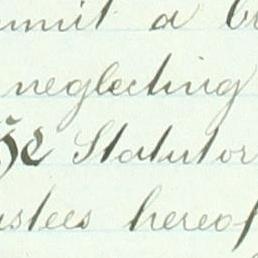 a
neglecting
Statutor
ustees hereof